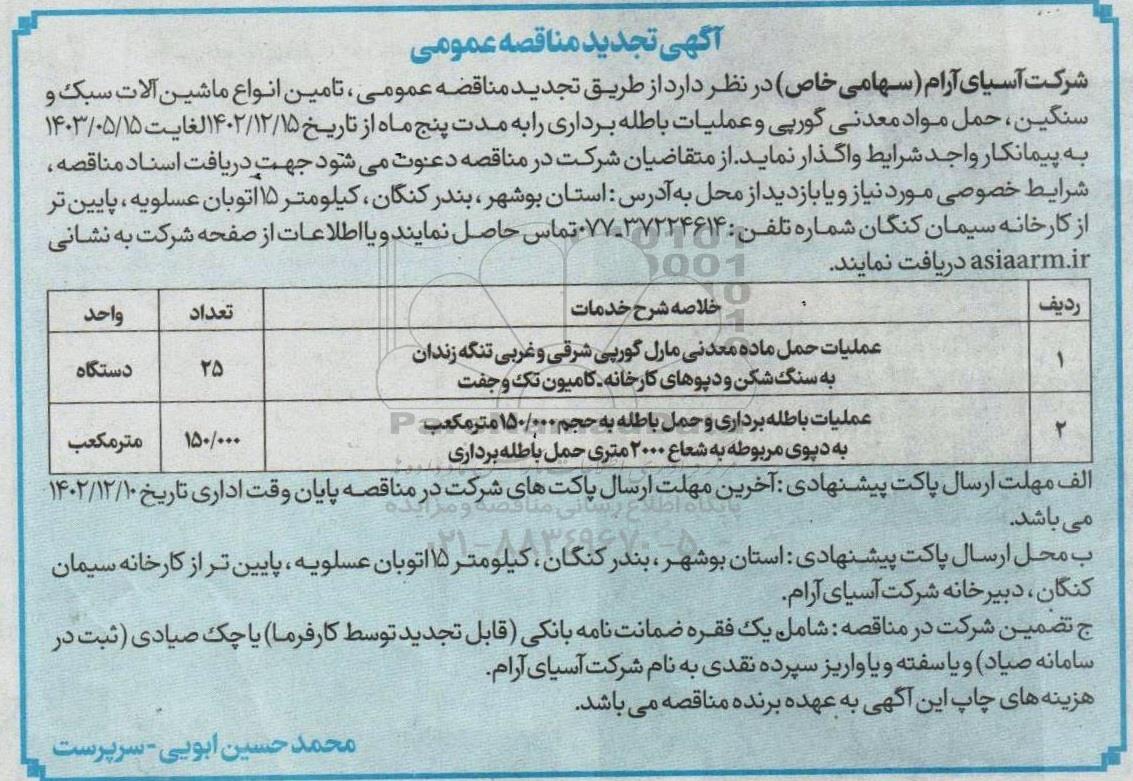 آگهی تجدید مناقصه عمومی
شرکت آسیای آرام (سهامی خاص) در نظر دارد از طریق تجدید مناقصه عمومی ، تامین انواع ماشین آلات سبک و
سنگین ، حمل مواد معدنی گورپی و عملیات باطله برداری را به مدت پنج ماه از تاریخ ۱۴۰۲/۱۲/۱۵ لغایت ۱۴۰۳/۰۵/۱۵
به پیمانکار واجد شرایط واگذار نماید. از متقاضیان شرکت در مناقصه دعوت می شود جهت دریافت اسناد مناقصه ،
شرایط خصوصی مورد نیاز و یا بازدید از محل به آدرس : استان بوشهر ، بندر کنگان ، کیلومتر ۱۵ اتوبان عسلویه ، پایین تر
از کارخانه سیمان کنگان شماره تلفن : ۳۷۲۲۴۶۱۴-۰۷۷ تماس حاصل نمایند و یا اطلاعات از صفحه شرکت به نشانی
asiaarm.ir دریافت نمایند.
ردیف خلاصه شرح خدمات تعداد واحد
۱ عملیات حمل ماده معدنی مارل گورپی شرقی و غربی تنگه زندان ۲۵ دستگاه
به سنگ شکن و دپوهای کارخانه-کامیون تک و جفت
۲ عملیات باطله برداری و حمل باطله به حجم ۱۵۰/۰۰۰ مترمکعب ۱۵۰/۰۰۰ مترمکعب
به دپوی مربوطه به شعاع ۲۰۰۰ متری حمل باطله برداری
الف مهلت ارسال پاکت پیشنهادی : آخرین مهلت ارسال پاکت های شرکت در مناقصه پایان وقت اداری تاریخ ۱۴۰۲/۱۲/۱۰
می باشد.
پایگاه اطلاع رسانی مناقصه و مزایده
۰۲۱-۸۸۳۴۹۶۷۰-۵
ب محل ارسال پاکت پیشنهادی : استان بوشهر ، بندر کنگان ، کیلومتر ۱۵ اتوبان عسلویه ، پایین تر از کارخانه سیمان
کنگان ، دبیرخانه شرکت آسیای آرام.
ج تضمین شرکت در مناقصه : شامل یک فقره ضمانت نامه بانکی (قابل تجدید توسط کارفرما) یا چک صیادی (ثبت در
سامانه صیاد) و یا سفته و یا واریز سپرده نقدی به نام شرکت آسیای آرام.
هزینه های چاپ این آگهی به عهده برنده مناقصه می باشد.
محمد حسین ابویی - سرپرست